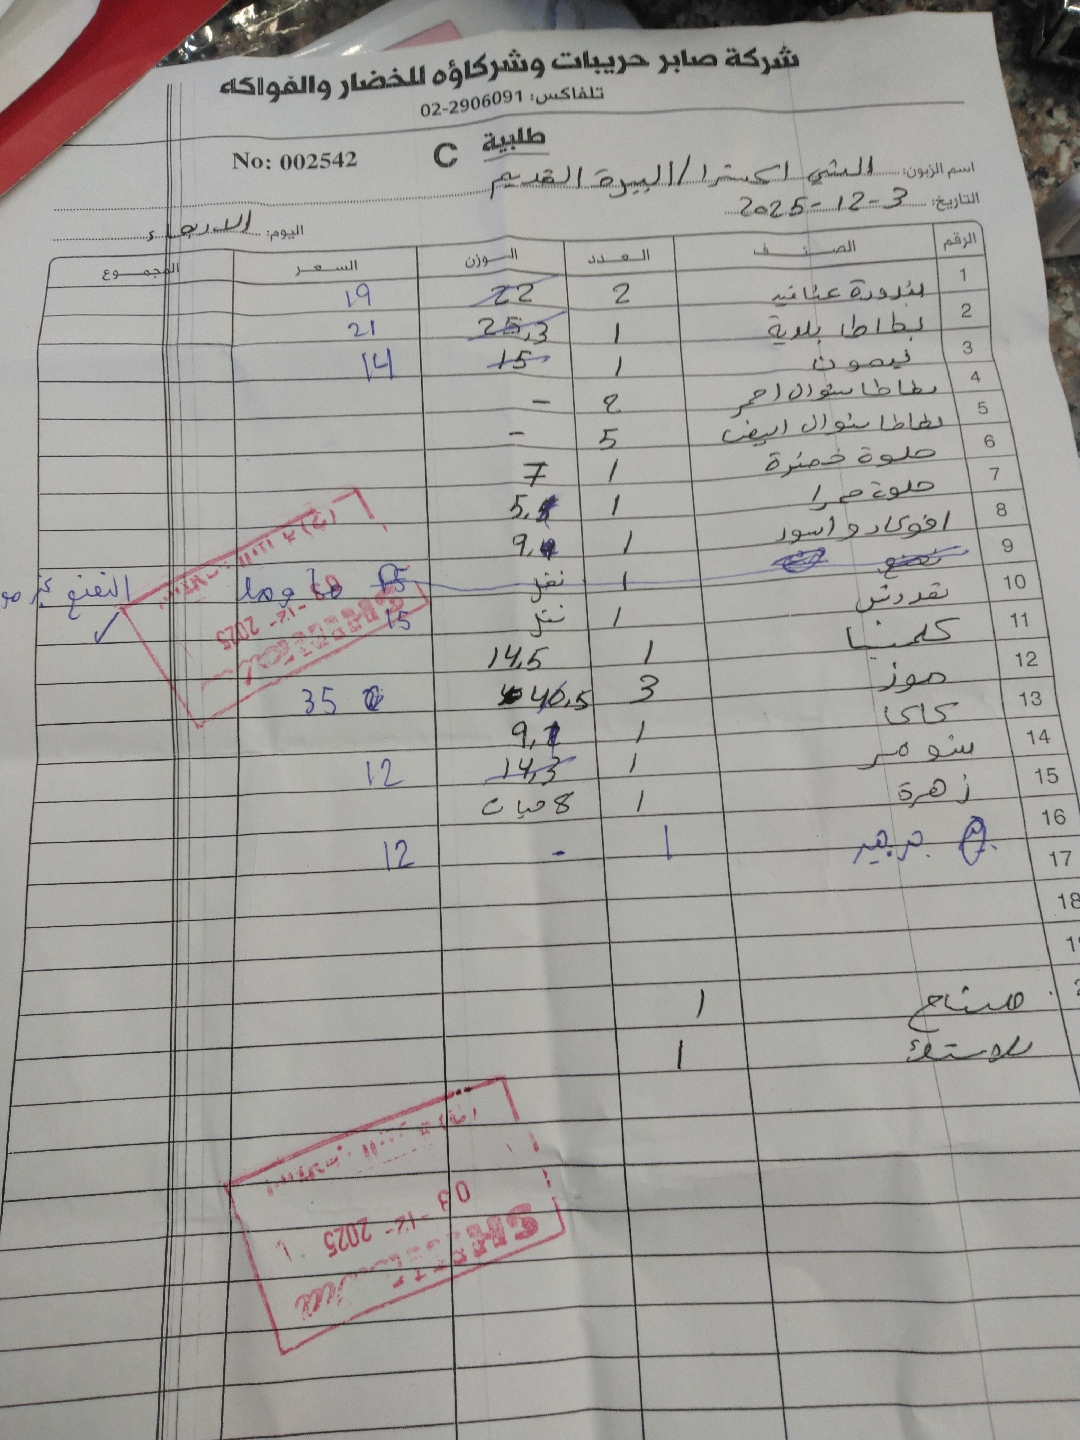 شركة صابر حريبات وشركاؤه للخضار والفواكه
تلفاكس: 02-2906091
طلبية C No: 002542
اسم الزبون: الشني اكسترا / البيرة القديم
التاريخ: 3-12-2025 اليوم: الاربعاء
الرقم الصنف العدد الوزن السعر المجموع
1 بندورة عناقيد 2 22 19
2 بطاطا بلدية 1 25,3 21
3 ليمون 1 15 14
4 بطاطا شوال احمر 2 -
5 بطاطا شوال ابيض 5 -
6 حلوة خضرة 1 7
7 حلوة حمرا 1 5,
8 افوكادو اسود 1 9,
9 نعنع 1 15 النعنع
10 بقدونس 1 15
11 كلمنتينا 1 14,5
12 موز 3 40,5 35
13 كاكا 1 9,
14 شومر 1 14,3 12
15 زهرة 1 8 حبات
16 جرجير 1 - 12
17
18
مشتاح 1
بلاستك 1
03-12-2025
03-12-2025